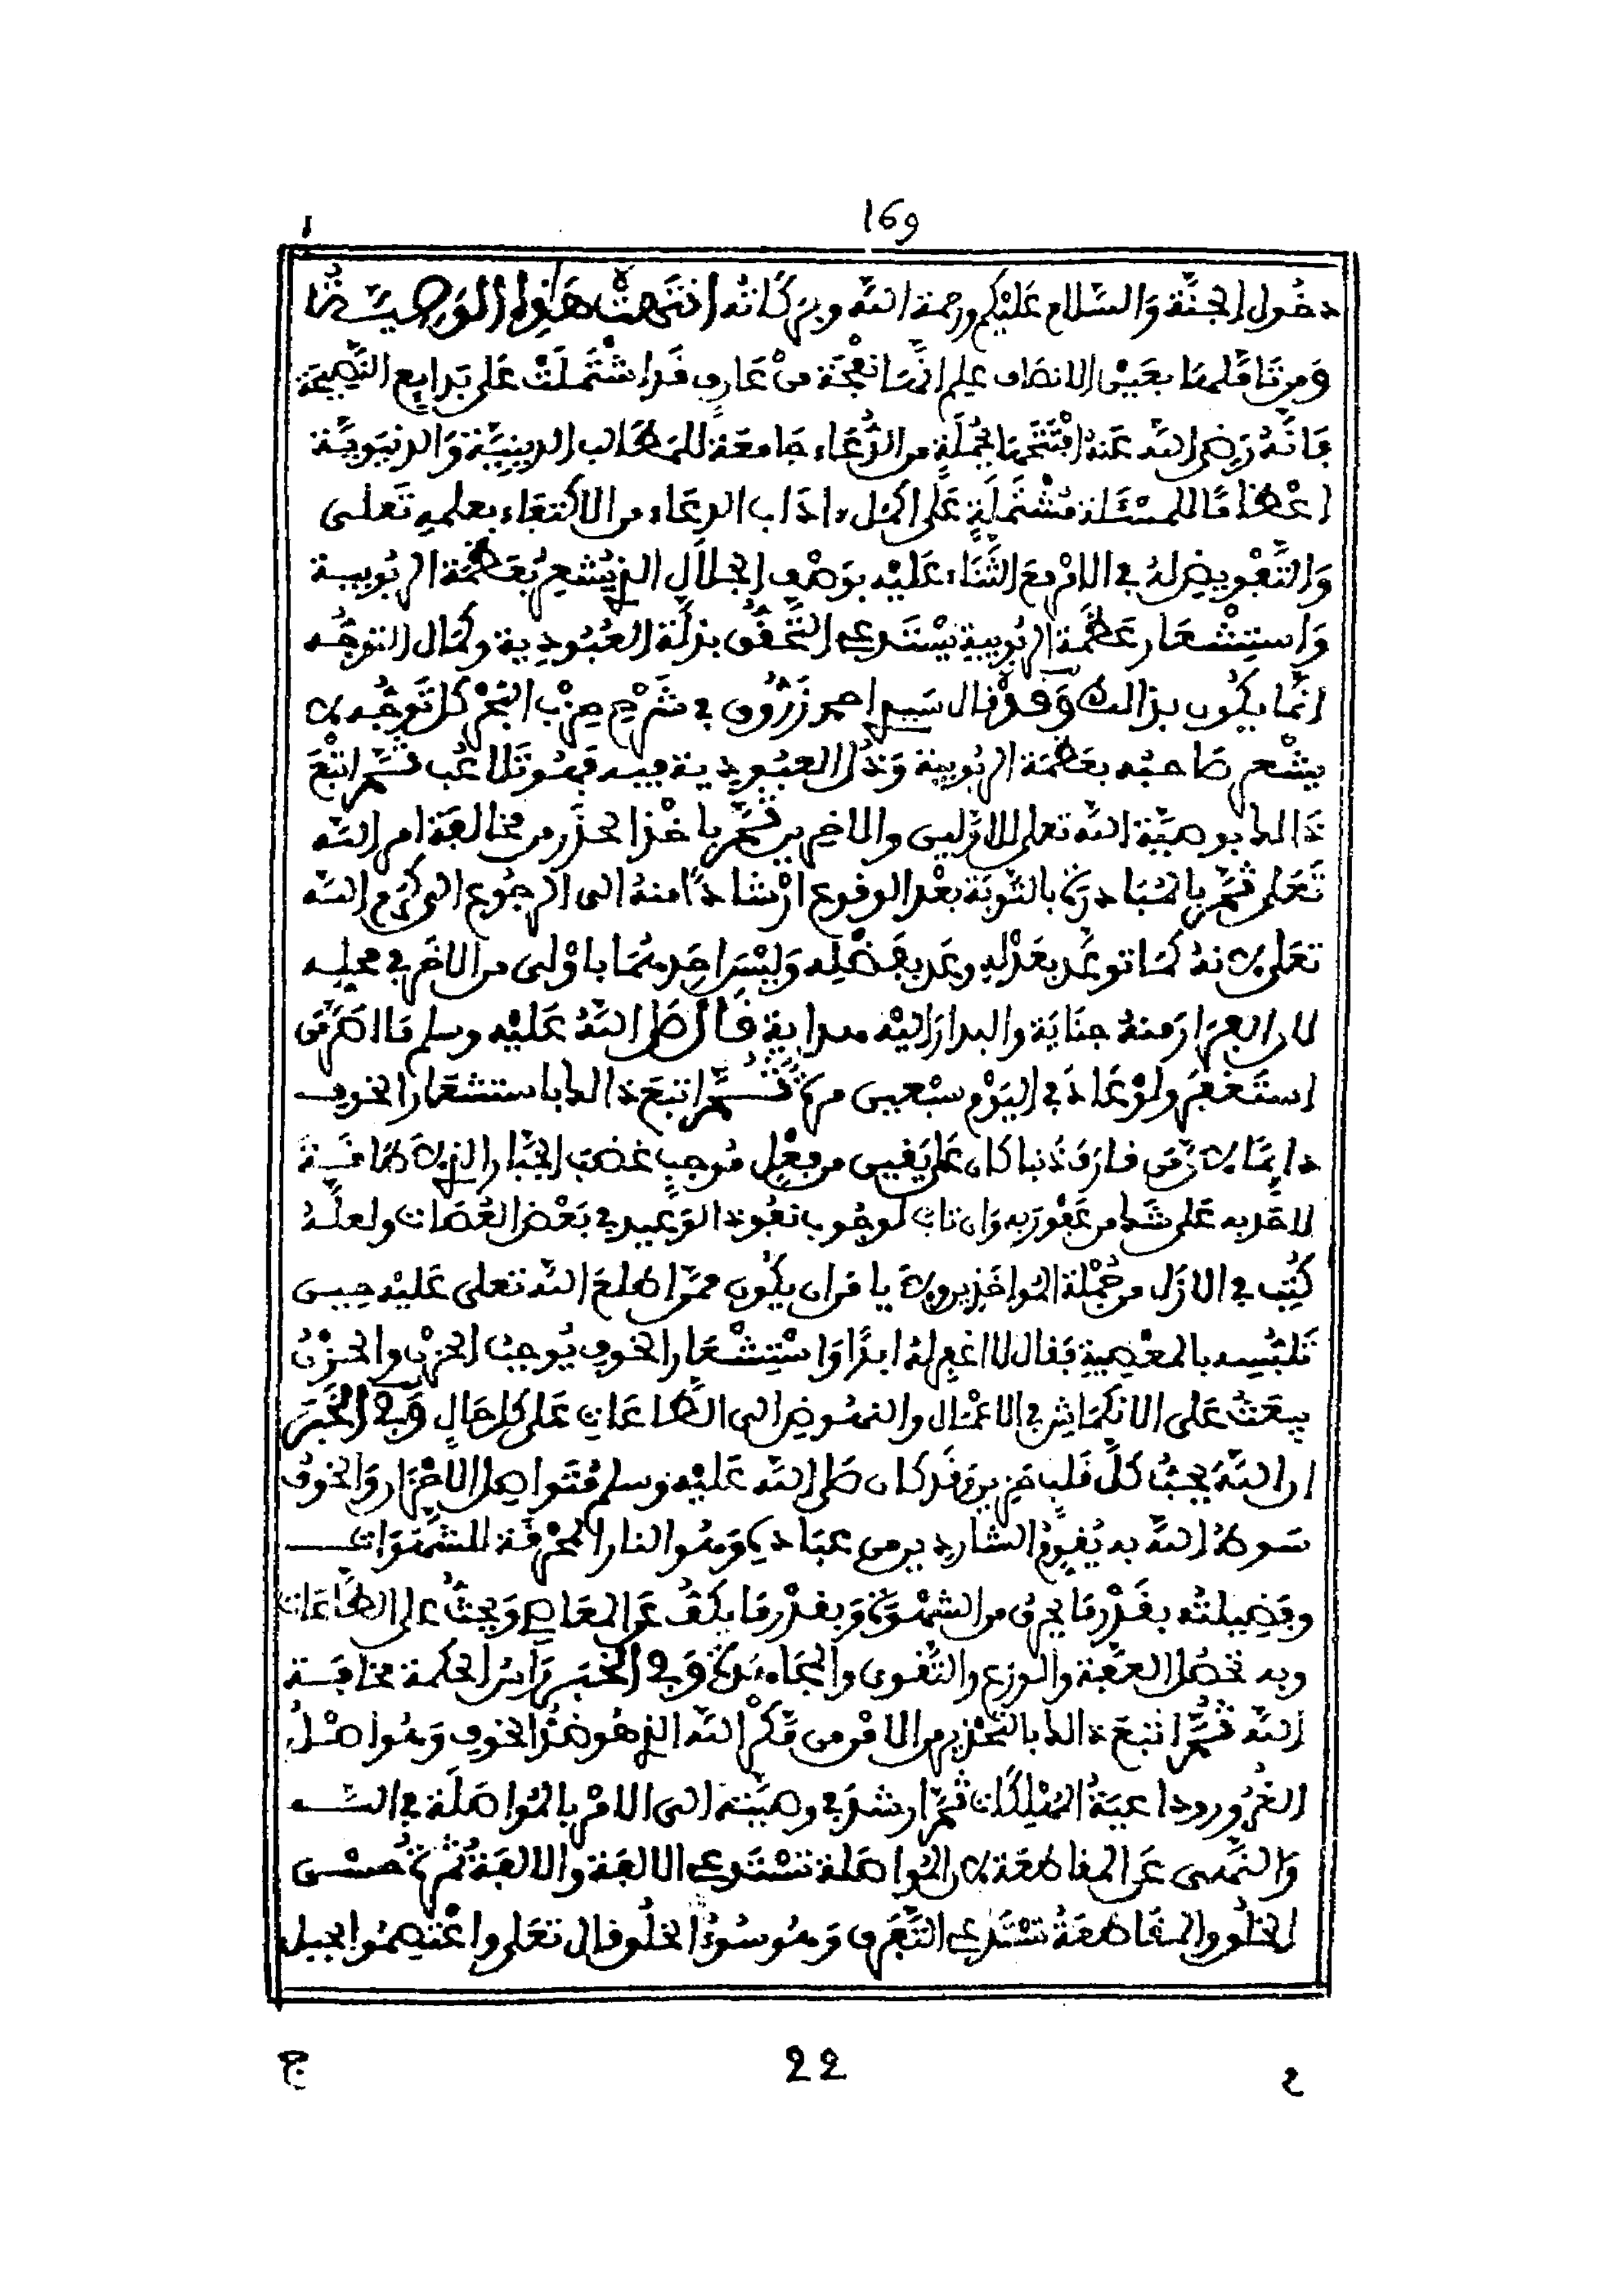 169
دخول الجنة والسلام عليكم ورحمة الله وبركاته انتهت هذه الوصية
ومن تاملها بعين الانصاف علم انها نفحة من عارف قد اشتملت على بدايع النصيحة
فانه رضي الله عنه افتتحها بجملة من الدعاء جامعة للمطالب الدينية والدنيوية
اعظاما للمسئلة مشتملة على اكمل ءاداب الدعاء من الاكتفاء بعلمه تعلى
والتفويض له في الامر مع الثناء عليه بوصف الجلال الذي يشعر بعظمة الربوبية
واستشعار عظمة الربوبية يستدعي التحقق بذلة العبودية وكمال التوجه
انما يكون بذالك وقد قال سيدي احمد زروق في شرح حزب البحر كل توجه لا
يشعر صاحبه بعظمة الربوبية وذل العبودية فيه فهو تلاعب ثم اتبع
ذالك بوصية الله تعلى للاولين والاخرين ثم باخذ الحذر من مخالفة امر الله
تعلى ثم بالمبادرة بالتوبة بعد الوقوع ارشادا منه الى الرجوع الى كرم الله
تعلى لانه كما توعد بعدله وعد بفضله وليس احدهما باولى من الاخر في محله
لان الفرار منه جناية والبدار اليه هداية قال صلى الله عليه وسلم ما اصر من
استغفر ولو عاد في اليوم سبعين مرة ثم اتبع ذالك باستشعار الخوف
دايما لان من قارف ذنبا كان على يقين من فعل موجب غضب الجبار الذي لا طاقة
لاحد به على شك من عفو ربه وان تاب لوجوب نفوذ الوعيد في بعض العصات ولعله
كتب في الازل من جملة المواخذين ولا يامن ان يكون ممن اطلع الله تعلى عليه حين
تلبسه بالمعصية فقال لا اغفر له ابدا واستشعار الخوف يوجب الحزن والحزن
يبعث على الانكماش في الاعمال والنهوض الى الطاعات على كل حال وفي الخبر
ان الله يحب كل قلب حزين وقد كان صلى الله عليه وسلم متواصل الاحزان والخوف
سوط الله به يقوم الشاردين من عباده وهو النار المحرقة للشهوات
وفضيلته بقدر ما يحرق من الشهوة وبقدر ما يكف عن المعاصي ويحث على الطاعات
وبه تحصل العفة والورع والتقوى والمجاهدة وفي الخبر راس الحكمة مخافة
الله ثم اتبع ذالك بالتحذير من الامن من مكر الله الذي هو ضد الخوف وهو اصل
الغرور وداعية المهلكات ثم ارشد في وصيته الى الامر بالمواصلة في الله
والنهي عن المقاطعة لان المواصلة تستدعي الالفة والالفة ثمرة حسن
الخلق والمقاطعة تستدعي التفرق وهو سوء الخلق قال تعلى واعتصموا بحبل
ج 22 ع